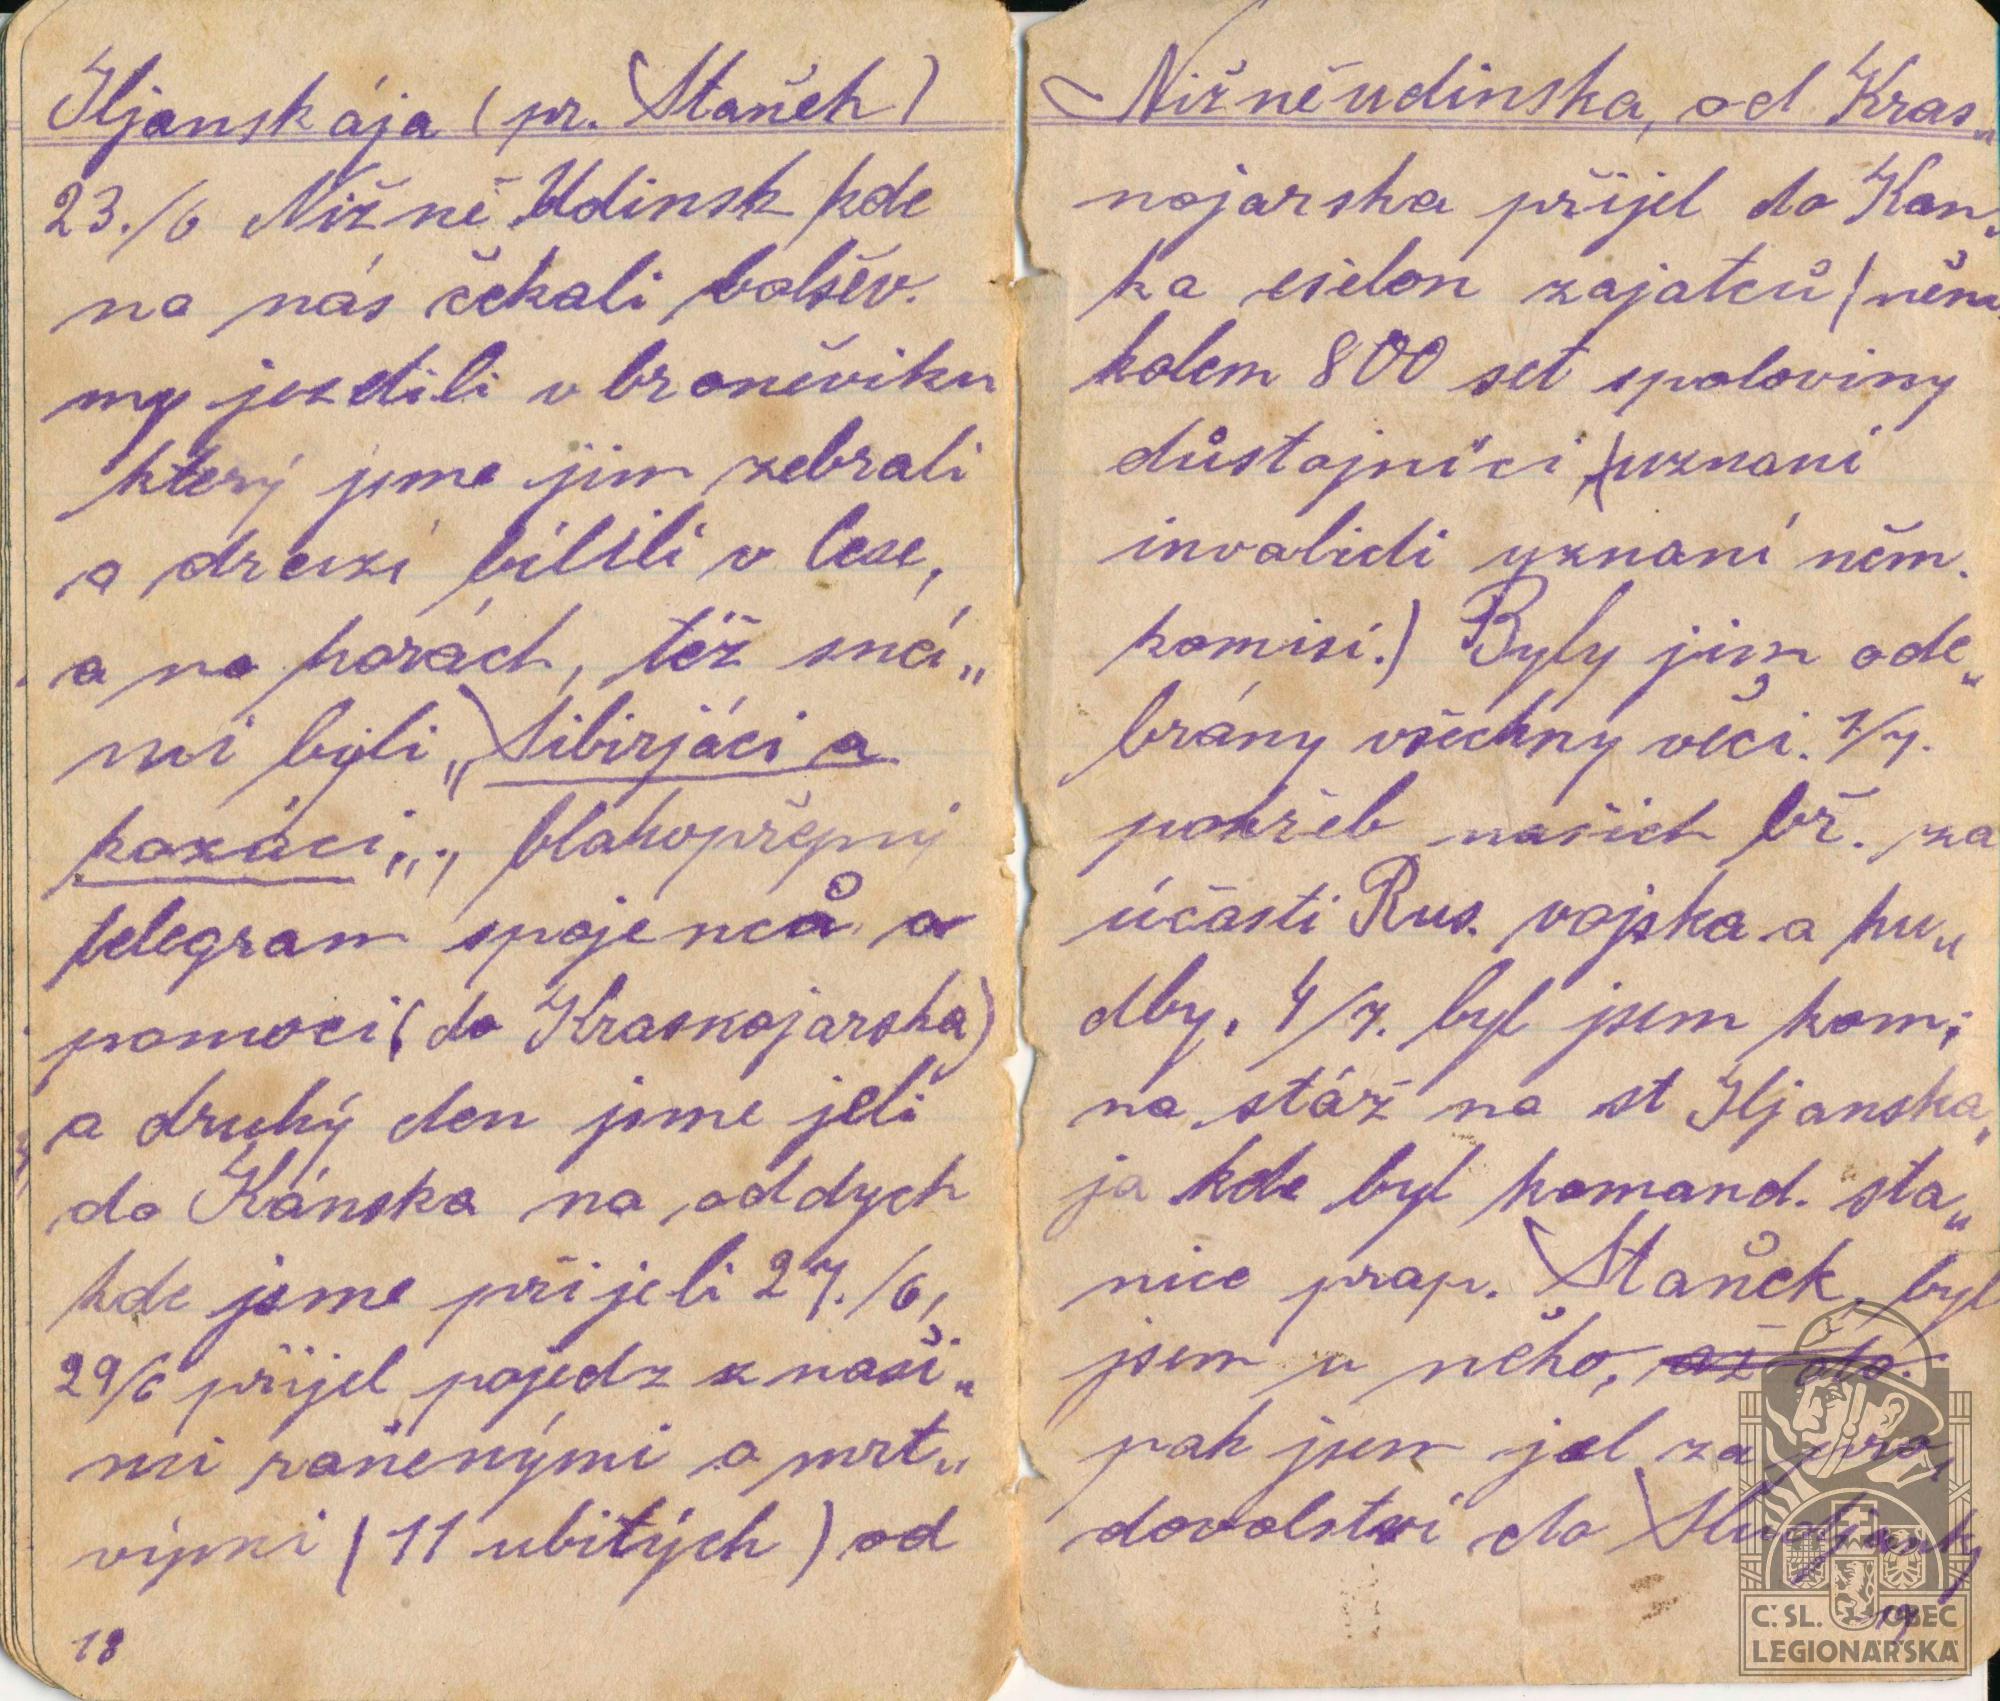 Iljanskája (pr. Staněk)
23./6 Nižně Udinsk kde
na nás čekali bolšěv.
my jezdili v broněviku
který jsme jim zebrali
a druzí bílili v lese,
a na horách, též sná„
mi byli „Sibirjáci a
kozáci„„ blahopřejný
telegram spojenců a
pomoci (do Kraskojarska)
a druhý den jsme jeli
do Kánska na oddych
kde jsme přijeli 27./6,
29/6 přijel pojedz z naši„
mi raněnými a mrt„
vými (11 ubitých) od
18
Nižněudinska, od Kras„
nojarska přijel do Kan„
ka ešelon zajatců (něm.
kolem 800 set spoloviny
důstojníci (uznaní
invalidi uznaní něm.
komisí.) Byly jim ode„
brány všechny věci. 1/7.
pohřeb našich br. za
účasti Rus. vojska a hu„
dby. 4/7. byl jsem kom;
na stáž na st Iljanska„
ja kde byl komand. sta„
nice prap. Staněk, byl
jsem u něho, až do.
pak jsem jel za pro„
dovolství do Sludjanky
19
Č.SL. OBEC
LEGIONÁŘSKÁ